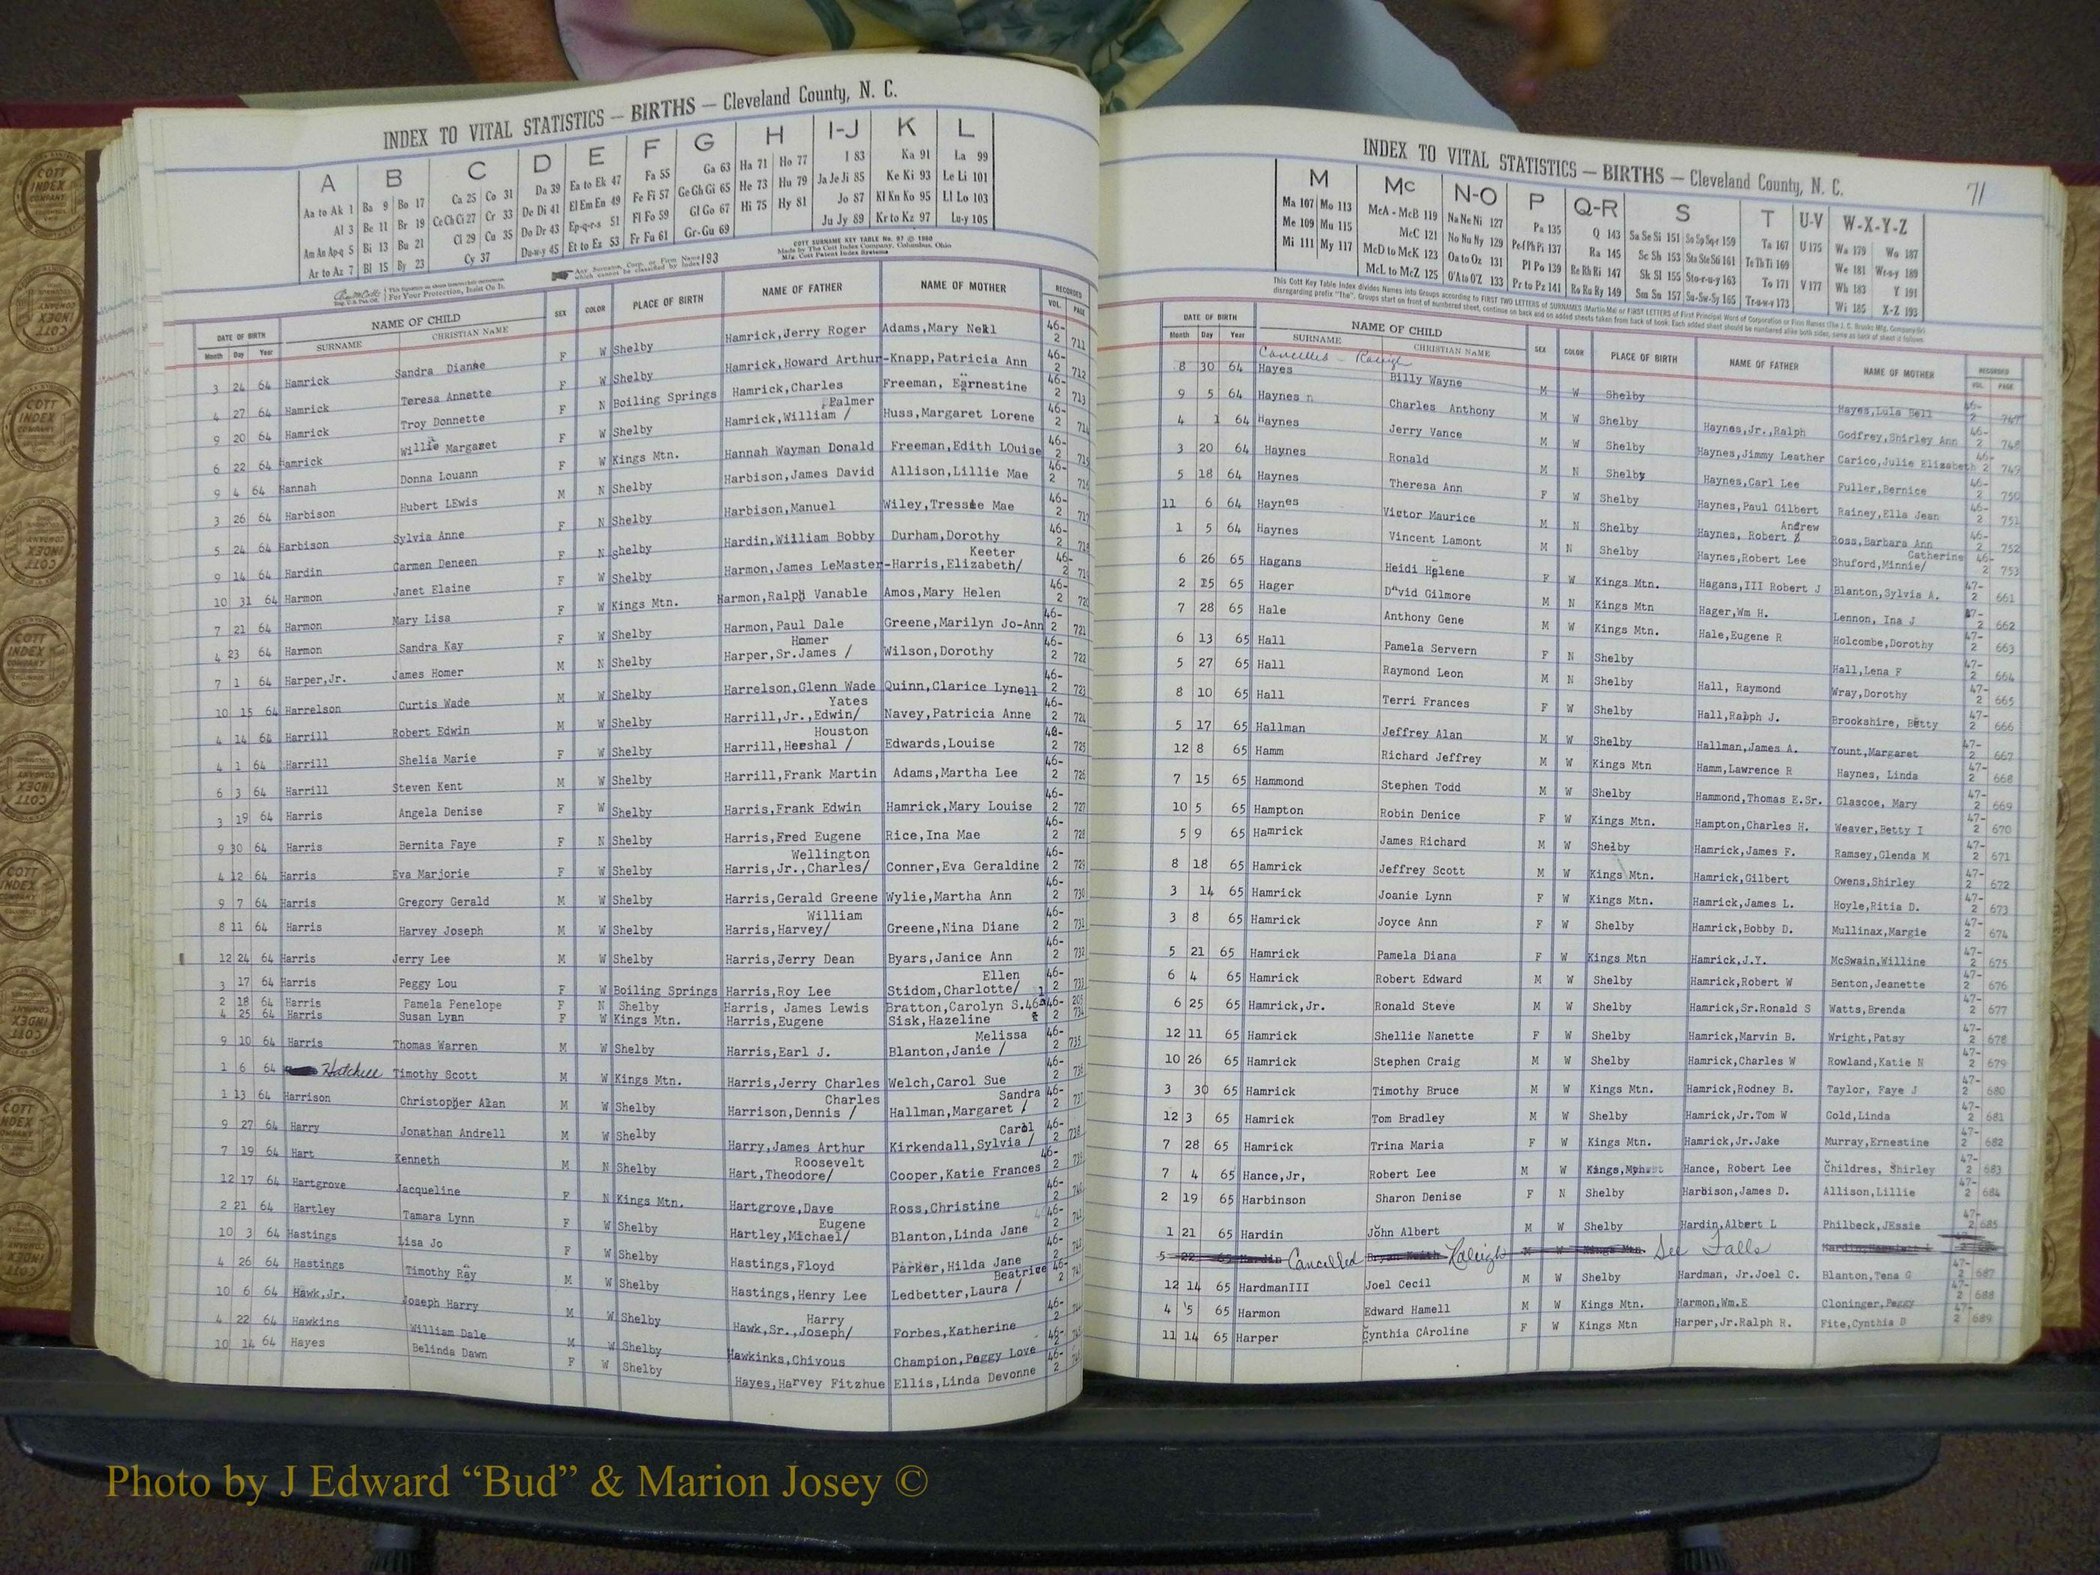 INDEX TO VITAL STATISTICS — BIRTHS — Cleveland County, N. C.
A B C D E F G H I-J K L
Aa to Ak 1 Ba 9 Bo 17 Ca 25 Co 31 Da 39 Ea to Ek 47 Fa 55 Ga 63 Ha 71 Ho 77 I 83 Ka 91 La 99
Al 3 Be 11 Br 19 Ce Ch Ci 27 Cr 33 De Di 41 El Em En 49 Fe Fi 57 Ge Gh Gi 65 He 73 Hu 79 Ja Je Ji 85 Ke Ki 93 Le Li 101
Am An Ap-q 5 Bi 13 Bu 21 Cl 29 Cu 35 Do Dr 43 Ep-q-r-s 51 Fl Fo 59 Gl Go 67 Hi 75 Hy 81 Jo 87 Kl Kn Ko 95 Ll Lo 103
Ar to Az 7 Bl 15 By 23 Cy 37 Du-w-y 45 Et to Ez 53 Fr Fu 61 Gr-Gu 69 Ju Jy 89 Kr to Kz 97 Lu-y 105
COTT SURNAME KEY TABLE No. 97 © 1960
Made by The Cott Index Company, Columbus, Ohio
Mfg. Cott Patent Index Systems
For Your Protection, Insist On It.
Any Surname, Corp. or Firm Name which cannot be classified by Index 193
DATE OF BIRTH NAME OF CHILD SEX COLOR PLACE OF BIRTH NAME OF FATHER NAME OF MOTHER RECORDED
Month Day Year SURNAME CHRISTIAN NAME VOL. PAGE
3 24 64 Hamrick Sandra Dianne F W Shelby Hamrick,Jerry Roger Adams,Mary Nell 46-2 711
4 27 64 Hamrick Teresa Annette F W Shelby Hamrick,Howard Arthur-Knapp,Patricia Ann 46-2 712
9 20 64 Hamrick Troy Donnette F N Boiling Springs Hamrick,Charles Freeman, Earnestine 46-2 713
6 22 64 Hamrick Willie Margaret F W Shelby Hamrick,William / Palmer Huss,Margaret Lorene 46-2 714
9 4 64 Hannah Donna Louann F W Kings Mtn. Hannah Wayman Donald Freeman,Edith LOuise 46-2 715
3 26 64 Harbison Hubert LEwis M N Shelby Harbison,James David Allison,Lillie Mae 46-2 716
5 24 64 Harbison Sylvia Anne F N Shelby Harbison,Manuel Wiley,Tressie Mae 46-2 717
9 14 64 Hardin Carmen Deneen F N Shelby Hardin,William Bobby Durham,Dorothy 46-2 718
10 31 64 Harmon Janet Elaine F W Shelby Harmon,James LeMaster-Harris,Elizabeth/ Keeter 46-2 719
7 21 64 Harmon Mary Lisa F W Kings Mtn. Harmon,Ralph Vanable Amos,Mary Helen 46-2 720
4 23 64 Harmon Sandra Kay F W Shelby Harmon,Paul Dale Greene,Marilyn Jo-Ann 46-2 721
7 1 64 Harper,Jr. James Homer M N Shelby Harper,Sr.James / Homer Wilson,Dorothy 46-2 722
10 15 64 Harrelson Curtis Wade M W Shelby Harrelson,Glenn Wade Quinn,Clarice Lynell 46-2 723
4 14 64 Harrill Robert Edwin M W Shelby Harrill,Jr.,Edwin/ Yates Navey,Patricia Anne 46-2 724
4 1 64 Harrill Shelia Marie F W Shelby Harrill,Hershal / Houston Edwards,Louise 46-2 725
6 3 64 Harrill Steven Kent M W Shelby Harrill,Frank Martin Adams,Martha Lee 46-2 726
3 19 64 Harris Angela Denise F W Shelby Harris,Frank Edwin Hamrick,Mary Louise 46-2 727
9 30 64 Harris Bernita Faye F N Shelby Harris,Fred Eugene Rice,Ina Mae 46-2 728
4 12 64 Harris Eva Marjorie F W Shelby Harris,Jr.,Charles/ Wellington Conner,Eva Geraldine 46-2 729
9 7 64 Harris Gregory Gerald M W Shelby Harris,Gerald Greene Wylie,Martha Ann 46-2 730
8 11 64 Harris Harvey Joseph M W Shelby Harris,Harvey/ William Greene,Nina Diane 46-2 731
12 24 64 Harris Jerry Lee M W Shelby Harris,Jerry Dean Byars,Janice Ann 46-2 732
3 17 64 Harris Peggy Lou F W Boiling Springs Harris,Roy Lee Stidom,Charlotte/ Ellen 46-2 733
2 18 64 Harris Pamela Penelope F N Shelby Harris, James Lewis Bratton,Carolyn S. 46- 205
4 25 64 Harris Susan Lynn F W Kings Mtn. Harris,Eugene Sisk,Hazeline 2 734
9 10 64 Harris Thomas Warren M W Shelby Harris,Earl J. Blanton,Janie / Melissa 46-2 735
1 6 64 Hatchell Timothy Scott M W Kings Mtn. Harris,Jerry Charles Welch,Carol Sue 46-2 736
1 13 64 Harrison Christopher Alan M W Shelby Harrison,Dennis / Charles Hallman,Margaret / Sandra 46-2 737
9 27 64 Harry Jonathan Andrell M W Shelby Harry,James Arthur Kirkendall,Sylvia / Carol 46-2 738
7 19 64 Hart Kenneth M N Shelby Hart,Theodore/ Roosevelt Cooper,Katie Frances 46-2 739
12 17 64 Hartgrove Jacqueline F N Kings Mtn. Hartgrove,Dave Ross,Christine 46-2 740
2 21 64 Hartley Tamara Lynn F W Shelby Hartley,Michael/ Eugene Blanton,Linda Jane 46-2 741
10 3 64 Hastings Lisa Jo F W Shelby Hastings,Floyd Parker,Hilda Jane 46-2 742
4 26 64 Hastings Timothy Ray M W Shelby Hastings,Henry Lee Ledbetter,Laura / Beatrice 46-2 743
10 6 64 Hawk,Jr. Joseph Harry M W Shelby Hawk,Sr.,Joseph/ Harry Forbes,Katherine 46-2
4 22 64 Hawkins William Dale M W Shelby Hawkinks,Chivous Champion,Peggy Love 46-
10 14 64 Hayes Belinda Dawn F W Shelby Hayes,Harvey Fitzhue Ellis,Linda Devonne 46-2
INDEX TO VITAL STATISTICS — BIRTHS — Cleveland County, N. C. 71
M Mc N-O P Q-R S T U-V W-X-Y-Z
Ma 107 Mo 113 McA - McB 119 Na Ne Ni 127 Pa 135 Q 143 Sa Se Si 151 So Sp Sq-r 159 Ta 167 U 175 Wa 179 Wo 187
Me 109 Mu 115 McC 121 No Nu Ny 129 Pe-f Ph Pi 137 Ra 145 Sc Sh 153 Sta Ste Sti 161 Te Th Ti 169 We 181 Wr-u-y 189
Mi 111 My 117 McD to McK 123 Oa to Oz 131 Pl Po 139 Re Rh Ri 147 Sk Sl 155 Sto-r-u-y 163 To 171 V 177 Wh 183 Y 191
McL to McZ 125 O'A to O'Z 133 Pr to Pz 141 Ro Ru Ry 149 Sm Sn 157 Su-Sw-Sy 165 Tr-u-w-y 173 Wi 185 X-Z 193
This Cott Key Table Index divides Names into Groups according to FIRST TWO LETTERS of SURNAMES (Martin-Ma) or FIRST LETTERS of First Principal Word of Corporation or Firm Names
disregarding prefix "The". Groups start on front of numbered sheet, continue on back and on added sheets taken from back of book. Each added sheet should be numbered alike both sides, same as back of sheet it follows.
DATE OF BIRTH NAME OF CHILD SEX COLOR PLACE OF BIRTH NAME OF FATHER NAME OF MOTHER RECORDED
Month Day Year SURNAME CHRISTIAN NAME VOL. PAGE
Cancelled - Raleigh
8 30 64 Hayes Billy Wayne M W Shelby Hayes,Lula Bell 46-2 747
9 5 64 Haynes Charles Anthony M W Shelby Haynes,Jr.,Ralph Godfrey,Shirley Ann 46-2 748
4 1 64 Haynes Jerry Vance M W Shelby Haynes,Jimmy Leather Carico,Julie Elizabeth 46-2 749
3 20 64 Haynes Ronald M N Shelby Haynes,Carl Lee Fuller,Bernice 46-2 750
5 18 64 Haynes Theresa Ann F W Shelby Haynes,Paul Gilbert Rainey,Ella Jean 46-2 751
11 6 64 Haynes Victor Maurice M N Shelby Haynes, Robert / Andrew Ross,Barbara Ann 46-2 752
1 5 64 Haynes Vincent Lamont M N Shelby Haynes,Robert Lee Shuford,Minnie/ Catherine 46-2 753
6 26 65 Hagans Heidi Helene F W Kings Mtn. Hagans,III Robert J Blanton,Sylvia A. 47-2 661
2 15 65 Hager David Gilmore M N Kings Mtn Hager,Wm H. Lennon, Ina J 47-2 662
7 28 65 Hale Anthony Gene M W Kings Mtn. Hale,Eugene R Holcombe,Dorothy 47-2 663
6 13 65 Hall Pamela Servern F N Shelby Hall,Lena F 47-2 664
5 27 65 Hall Raymond Leon M N Shelby Hall, Raymond Wray,Dorothy 47-2 665
8 10 65 Hall Terri Frances F W Shelby Hall,Ralph J. Brookshire, Betty 47-2 666
5 17 65 Hallman Jeffrey Alan M W Shelby Hallman,James A. Yount,Margaret 47-2 667
12 8 65 Hamm Richard Jeffrey M W Kings Mtn Hamm,Lawrence R Haynes, Linda 47-2 668
7 15 65 Hammond Stephen Todd M W Shelby Hammond,Thomas E.Sr. Glascoe, Mary 47-2 669
10 5 65 Hampton Robin Denice F W Kings Mtn. Hampton,Charles H. Weaver,Betty I 47-2 670
5 9 65 Hamrick James Richard M W Shelby Hamrick,James F. Ramsey,Glenda M 47-2 671
8 18 65 Hamrick Jeffrey Scott M W Kings Mtn. Hamrick,Gilbert Owens,Shirley 47-2 672
3 14 65 Hamrick Joanie Lynn F W Kings Mtn. Hamrick,James L. Hoyle,Ritia D. 47-2 673
3 8 65 Hamrick Joyce Ann F W Shelby Hamrick,Bobby D. Mullinax,Margie 47-2 674
5 21 65 Hamrick Pamela Diana F W Kings Mtn Hamrick,J.Y. McSwain,Willine 47-2 675
6 4 65 Hamrick Robert Edward M W Shelby Hamrick,Robert W Benton,Jeanette 47-2 676
6 25 65 Hamrick,Jr. Ronald Steve M W Shelby Hamrick,Sr.Ronald S Watts,Brenda 47-2 677
12 11 65 Hamrick Shellie Nanette F W Shelby Hamrick,Marvin B. Wright,Patsy 47-2 678
10 26 65 Hamrick Stephen Craig M W Shelby Hamrick,Charles W Rowland,Katie N 47-2 679
3 30 65 Hamrick Timothy Bruce M W Kings Mtn. Hamrick,Rodney B. Taylor, Faye J 47-2 680
12 3 65 Hamrick Tom Bradley M W Shelby Hamrick,Jr.Tom W Gold,Linda 47-2 681
7 28 65 Hamrick Trina Maria F W Kings Mtn. Hamrick,Jr.Jake Murray,Ernestine 47-2 682
7 4 65 Hance,Jr, Robert Lee M W Kings, Hance, Robert Lee Childres, Shirley 47-2 683
2 19 65 Harbinson Sharon Denise F N Shelby Harbison,James D. Allison,Lillie 47-2 684
1 21 65 Hardin John Albert M W Shelby Hardin,Albert L Philbeck,JEssie 47-2 685
5 22 65 Hardin Cancelled Bryan Keith Raleigh M W Kings Mtn. See Falls
12 14 65 HardmanIII Joel Cecil M W Shelby Hardman, Jr.Joel C. Blanton,Tena G 47-2 687
4 5 65 Harmon Edward Hamell M W Kings Mtn. Harmon,Wm.E Cloninger,Peggy 47-2 688
11 14 65 Harper Cynthia CAroline F W Kings Mtn Harper,Jr.Ralph R. Fite,Cynthia B 47-2 689
Photo by J Edward “Bud” & Marion Josey ©